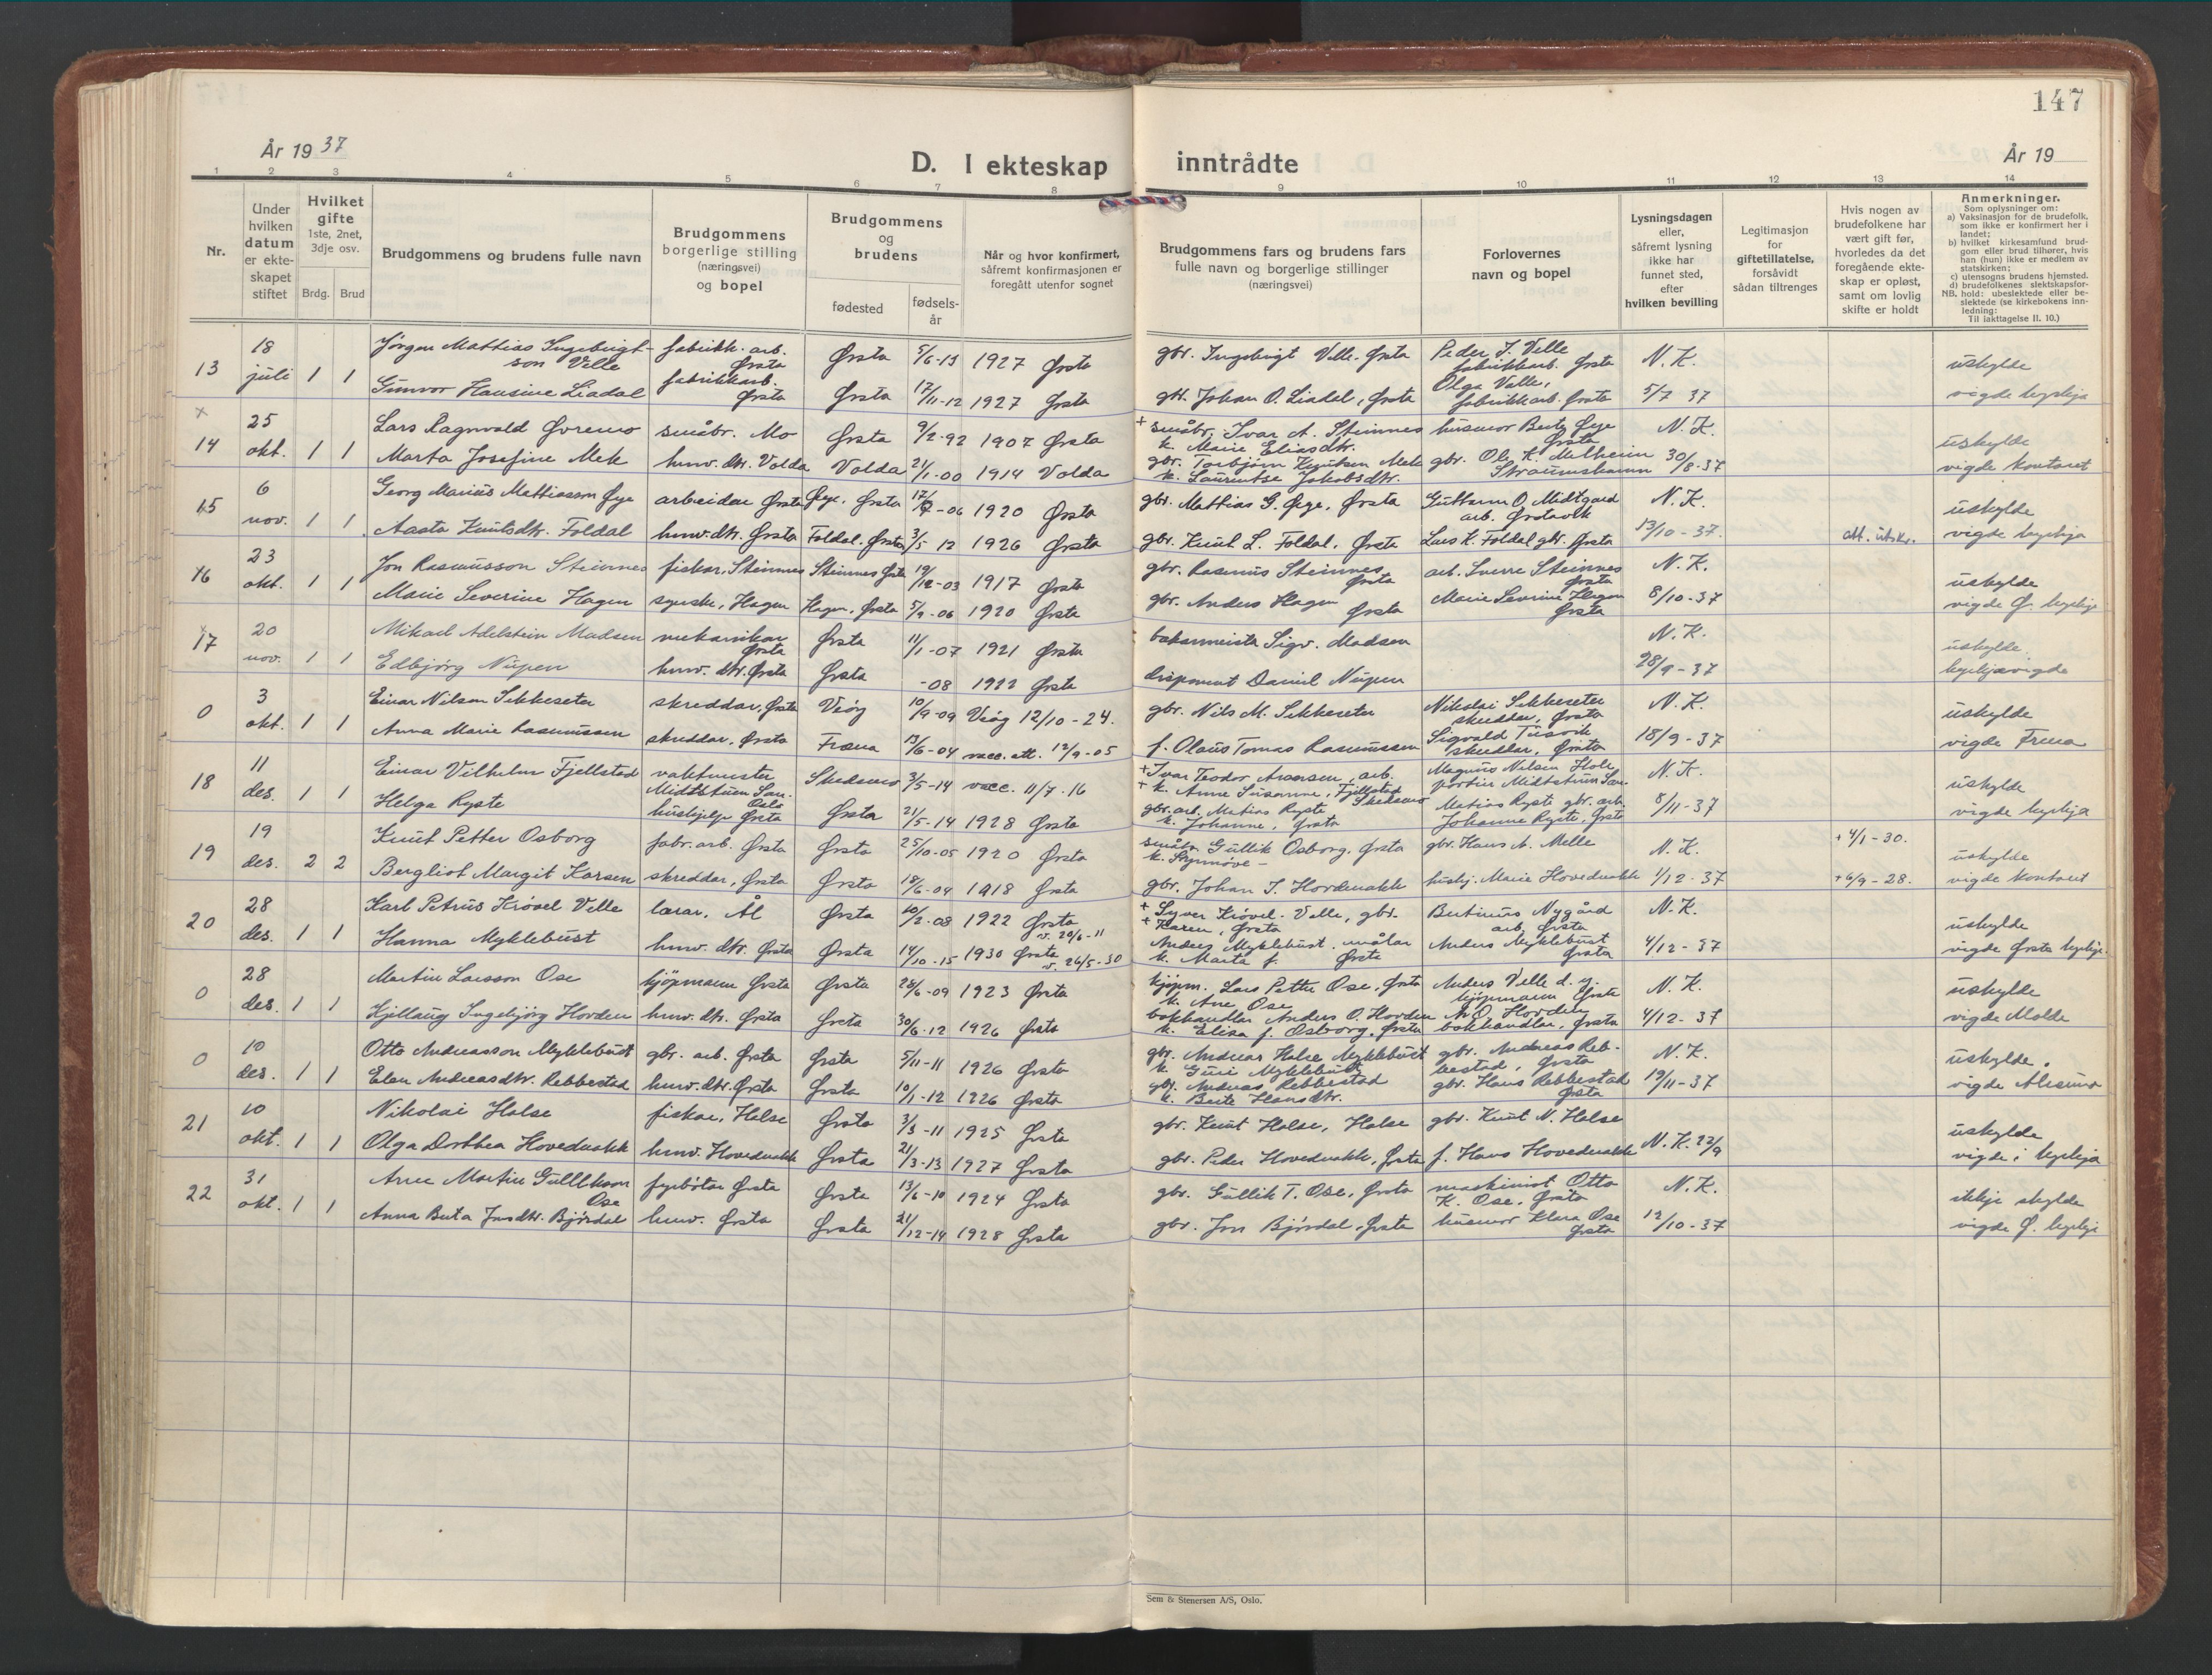 147
År 19 37
D. I ekteskap inntrådte
År 19
1 2 3 4 5 6 7 8 9 10 11 12 13 14
Nr.
Under hvilken datum er ekteskapet stiftet
Hvilket gifte 1ste, 2net, 3dje osv.
Brdg. Brud
Brudgommens og brudens fulle navn
Brudgommens borgerlige stilling (næringsvei) og bopel
Brudgommens og brudens
fødested
fødselsår
Når og hvor konfirmert, såfremt konfirmasjonen er foregått utenfor sognet
Brudgommens fars og brudens fars fulle navn og borgerlige stillinger (næringsvei)
Forlovernes navn og bopel
Lysningsdagen eller, såfremt lysning ikke har funnet sted, efter hvilken bevilling
Legitimasjon for giftetillatelse, forsåvidt sådan tiltrenges
Hvis nogen av brudefolkene har vært gift før, hvorledes da det foregående ekteskap er opløst, samt om lovlig skifte er holdt
Anmerkninger.
Som oplysninger om:
a) Vaksinasjon for de brudefolk, som ikke er konfirmert her i landet;
b) hvilket kirkesamfund brudgom eller brud tilhører, hvis han (hun) ikke er medlem av statskirken;
c) utensogns brudens hjemsted.
d) brudefolkenes slektskapsforhold: ubeslektede eller beslektede (se kirkebokens innledning:
NB. Til iakttagelse II. 10.)
13 18 juli 1 1 Jørgen Mattias Ingebrigtson Velle fabrikk.arb. Ørsta Ørsta 5/6-13 1927 Ørsta gbr. Ingebrigt Velle. Ørsta Peder J. Velle fabrikkarb. Ørsta N.K. uskylde
Gunvor Hansine Liadal fabrikkarb. Ørsta Ørsta 17/11-12 1927 Ørsta gbr. Johan O. Liadal, Ørsta Olga Velle, fabrikkarb. Ørsta 5/7 37 vigde kyrkja
x
14 25 okt. 1 1 Lars Ragnvald Øvremo småbr. Mo Ørsta 9/2-92 1907 Ørsta + småbr. Ivar A. Steinnes k. Marie Eliasdtr. husmor Ørsta N.K. uskylde
Marta Josefine Mek husv. dtr. Volda Volda 21/1-00 1914 Volda gbr. Torbjørn Mek k. Laurentse Jakobsdtr. gbr. Ole K. Melheim Straumshamn 30/8-37 vigde kontoret
15 6 nov. 1 1 Georg Marius Mattiasson Øye arbeidar Ørsta Øye, Ørsta -06 1920 Ørsta gbr. Mattias G. Øye, Ørsta Guttorm O. Midtgard arb. Ørstavik N.K. uskylde
Aasta Knutsdtr. Foldal husv.dtr. Ørsta Foldal. Ørsta 3/5 12 1926 Ørsta gbr. Knut L. Foldal, Ørsta Lars K. Foldal gbr. Ørsta 13/10-37. att. utskr. vigde kyrkja
16 23 okt. 1 1 Jon Rasmusson Steinnes fiskar, Steinnes Steinnes Ørsta 19/12-03 1917 Ørsta gbr. Rasmus Steinnes Ørsta arb. Sverre Steinnes Ørsta N.K. uskylde
Marie Severine Hagen syerske, Hagen Hagen, Ørsta 5/9-06 1920 Ørsta gbr. Anders Hagen Ørsta Marie Sevrine Hagen Ørsta 8/10-37 vigde Ø. kyrkje
17 20 nov. 1 1 Mikael Adelstein Madsen mekanikar Ørsta Ørsta 11/1-07 1921 Ørsta bakarmeister Sigv. Madsen N.K. uskylde.
Edbjørg Nupen husv. dtr. Ørsta Ørsta -08 1922 Ørsta disponent Daniel Nupen 28/9-37 kyrkjevigde
0 3 okt. 1 1 Einar Nilsen Sekkeseter skreddar, Ørsta Veøy 10/9-09 Veøy 12/10-24. gbr. Nils M. Sekkeseter Nikolai Sekkeseter skreddar, Ørsta N.K. uskylde
Anna Marie Rasmussen skreddar, Ørsta Fræna 13/6-04 vacc. att. 12/9-05 f. Olaus Tomas Rasmussen Sigvald skreddar, Ørsta 18/9-37 vigde Frena
18 11 des. 1 1 Einar Vilhelm Fjellstad vaktmester Midtstuen San. Oslo Skedsmo 3/5-14 vacc. 11/7-16 + Ivar Teodor Aronsen, arb. + k. Anne Susanne, Fjellstad Skedsmo Magnus Nilsen Hole portier Midtstuen San. N.K. uskylde
Helga Ryste hushjelp Ørsta Ørsta 21/5-14 1928 Ørsta gbr.arb. Matias Ryste k. Johanne, Ørsta Matias Ryste gbr. arb. Johanne Ryste, Ørsta 8/11-37 vigde kyrkja
19 19 des. 2 2 Knut Petter Osborg fabr. arb. Ørsta Ørsta 25/10-05 1920 Ørsta småbr. Gullik Osborg, Ørsta k. Synnøve - gbr. Hans A. Melle N.K. + 4/1-30. uskylde
Bergliot Margit Korsen skreddar, Ørsta Ørsta 18/6-04 1918 Ørsta gbr. Johan J. Hovdenakk hushj. Marie Hovdenakk 1/12-37 + 6/9-28. vigde kontoret
20 28 des. 1 1 Karl Petrus Krøvel Velle lærar, Ål Ørsta 10/2-08 1922 Ørsta v. 20/6-11 + Syver Krøvel-Velle, gbr. + Karen, Ørsta Bertinus Nygård arb. Ørsta N.K. uskylde
Hanna Myklebust husv. dtr. Ørsta Ørsta 14/10-15 1930 Ørsta v. 26/5-30 Anders Myklebust, målar k. Marta f. Ørsta Anders Myklebust Ørsta 4/12-37 vigde Ørsta kyrkje.
0 28 des. 1 1 Martin Larsson Ose kjøpmann Ørsta Ørsta 28/6-09 1923 Ørsta kjøpm. Lars Petter Ose, Ørsta k. Ane Ose Anders Velle d.y. kjøpmann Ørsta N.K. uskylde
Kjellaug Ingebjørg Hovden husv. dtr. Ørsta Ørsta 30/6-12 1926 Ørsta bokhandlar Anders O. Hovden k. Elisa f. Osborg, Ørsta A.O. Hovden bokhandlar, Ørsta 4/12-37 vigde Molde
0 10 des. 1 1 Otto Andreasson Myklebust gbr. arb. Ørsta Ørsta 5/11-11 1926 Ørsta gbr. Andreas Halse Myklebust k. Guri Myklebust gbr. Andreas Rebbestad, Ørsta N.K. uskylde.
Elen Andreasdtr. Rebbestad husv. dtr. Ørsta Ørsta 10/1-12 1926 Ørsta gbr. Andreas Rebbestad k. Berte Hansdtr. gbr. Hans Rebbestad Ørsta 19/11-37 vigde Alesund
21 10 okt. 1 1 Nikolai Halse fiskar, Halse Ørsta 3/3-11 1925 Ørsta gbr. Knut Halse, Halse gbr. Knut N. Halse uskylde
Olga Dorthea Hovdenakk husv. Hovdenakk Ørsta 21/3-13 1927 Ørsta gbr. Peder Hovdenakk, Ørsta f. Hans Hovdenakk N.K. 22/9 vigde i kyrkja
22 31 okt. 1 1 Arne Martin Gullikson Ose fyrbøtar Ørsta Ørsta 13/6-10 1924 Ørsta gbr. Gullik T. Ose, Ørsta maskinist Otto K. Ose, Ørsta N.K. ikkje skylde
Anna Berta Jonsdtr. Bjørdal husv. Ørsta Ørsta 21/12-14 1928 Ørsta gbr. Jon Bjørdal, Ørsta husmor Klara Ose Ørsta 12/10-37 vigde Ø. kyrkje
Sem & Stenersen A/S, Oslo.